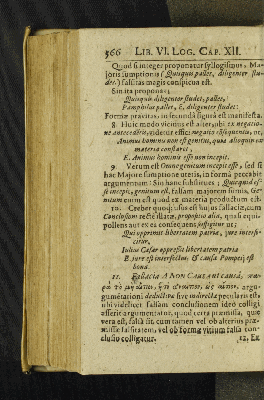 366 LIB. VI. LOG. CAP. XII.
Quod si integer proponatur syllogismus, Ma-
joris sumptionis (Quisquis pallet, diligenter stu-
det) falsitas magis conspicua est.
Sin ita proponas;
Quisquis diligenter studet, pallet,
Pamphilus pallet, E. diligenter studet:
Formæ pravitas in secunda figura est manifesta.
8. Huic modo vicinus est alter ex negatio-
ne antecedentis, videtur esse negatio consequentis, ut,
Animus hominis non est genitus, quia alioquin ex
materia constaret,
E. Animus hominis esse non incepit.
9. Verum est Omne genitum incepit esse, sed si
hac Majore sumptione uteris, in forma peccabit
argumentum: Sin hanc substitues; Quicquid es-
se incepit, genitum est, fallam majorem sumis, Ge-
nitum enim est quod ex materia productum est.
10. Creber quoque usus est hujus fallaciæ, cum
Conclusum recte illatæ, propositio alia, quasi equi-
pollens aut ex ea consequens suffigitur ut;
Qui opprimit libertatem patriæ, jure interfi-
citur,
Iulius Cæsar oppressit libertatem patriæ
E. jure est interfectus, & causa Pompeij est
bona.
11. Fallacia A NON Causa ut causa, πα-
ρὰ τὸ μὴ αἴτιον, ἢ τὸ ἀναίτιον, ὡς αἴτιον, argu-
mentationi deductivæ sive indirectæ peculiaris est
ubi videlicet falsam conclusionem ideo colligi
asserit argumentator, quod certa præmissa, quæ
vera est, falsa sit, cum tamen vel ob alterius præ-
missæ falsitatem, vel ob formæ vitium falsa con-
clusio colligatur.
12. Ex